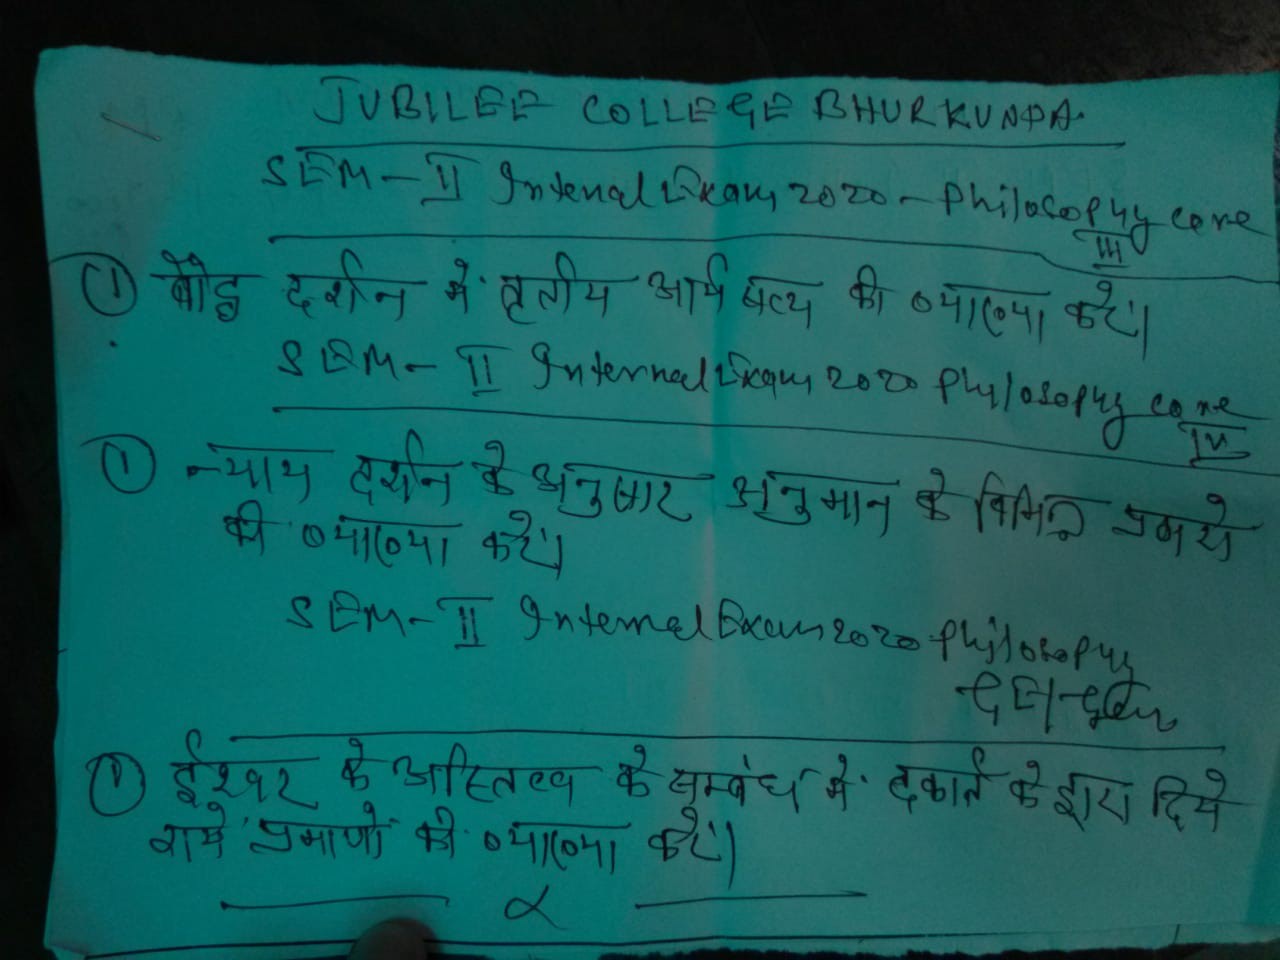 JUBILEE COLLEGE BHURKUNDA.
SEM-II Internal Exam 2020-Philosophy core
III
① बौद्ध दर्शन में तृतीय आर्य सत्य की व्याख्या करें।
SEM-II Internal Exam 2020 Philosophy core
IV
① न्याय दर्शन के अनुसार अनुमान के विभिन्न
की व्याख्या करें।
SEM-II Internal Exam 2020 Philosophy
① ईश्वर के अस्तित्व के सम्बंध में दकार्त के द्वारा दिये
गये प्रमाणों की व्याख्या करें।